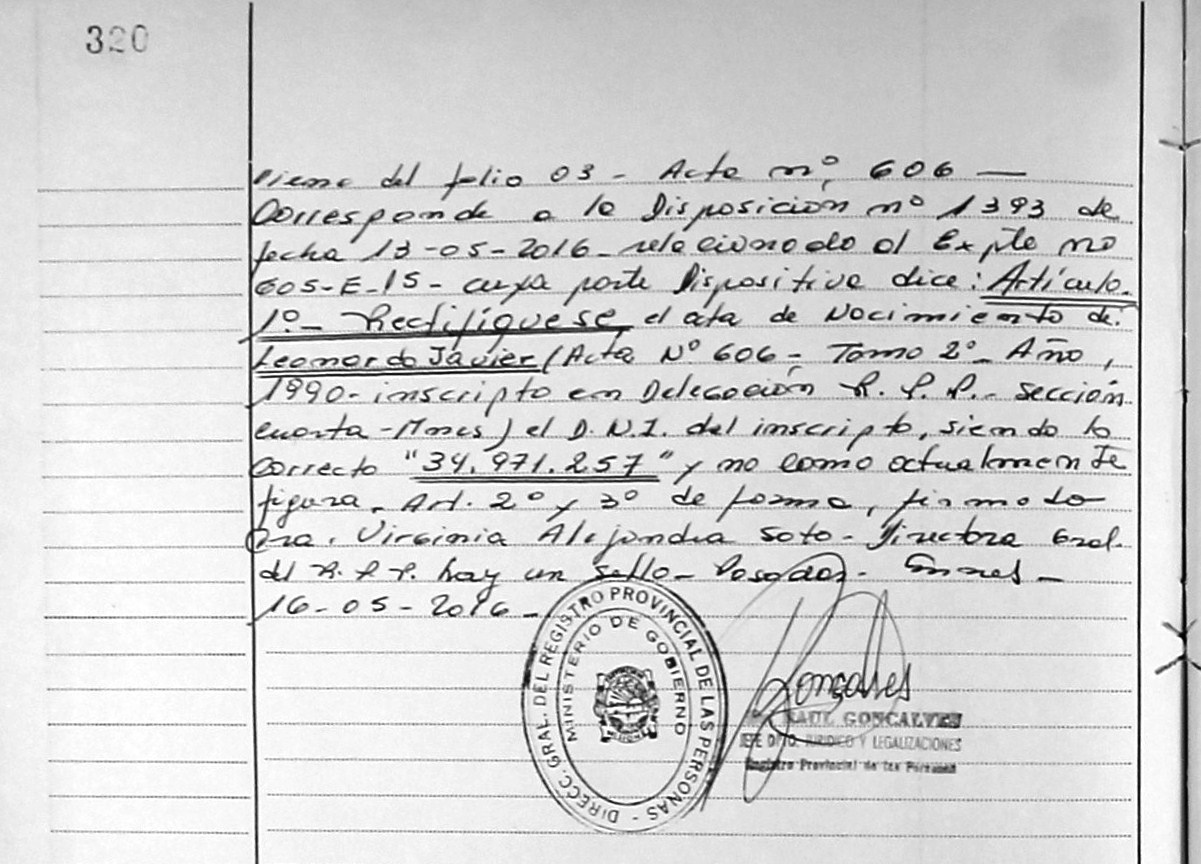 320
Viene del folio 03 - Acta nº 606 —
Corresponde a la Disposición nº 1393 de
fecha 13-05-2016 - relacionado al Expte no
605-E-15 - cuya parte Dispositiva dice: Artículo
1º - Rectifíquese el acta de Nacimiento de:
Leonardo Javier (Acta Nº 606 - Tomo 2º - Año,
1990 - inscripto en Delegación R.P.P. - Sección
cuarta - Mnes) el D.N.I. del inscripto, siendo lo
correcto "34.971.257" y no como actualmente
figura. Art. 2º y 3º de forma, firmado
Dra. Virginia Alejandra Soto - Directora Gral.
del R.P.P. hay un sello - Posadas - Mnes -
16-05-2016 -
DIRECC. GRAL. DEL REGISTRO PROVINCIAL DE LAS PERSONAS -
MINISTERIO DE GOBIERNO
Goncalves
RAUL GONCALVES
JEFE DPTO. JURIDICO Y LEGALIZACIONES
Registro Provincial de las Personas